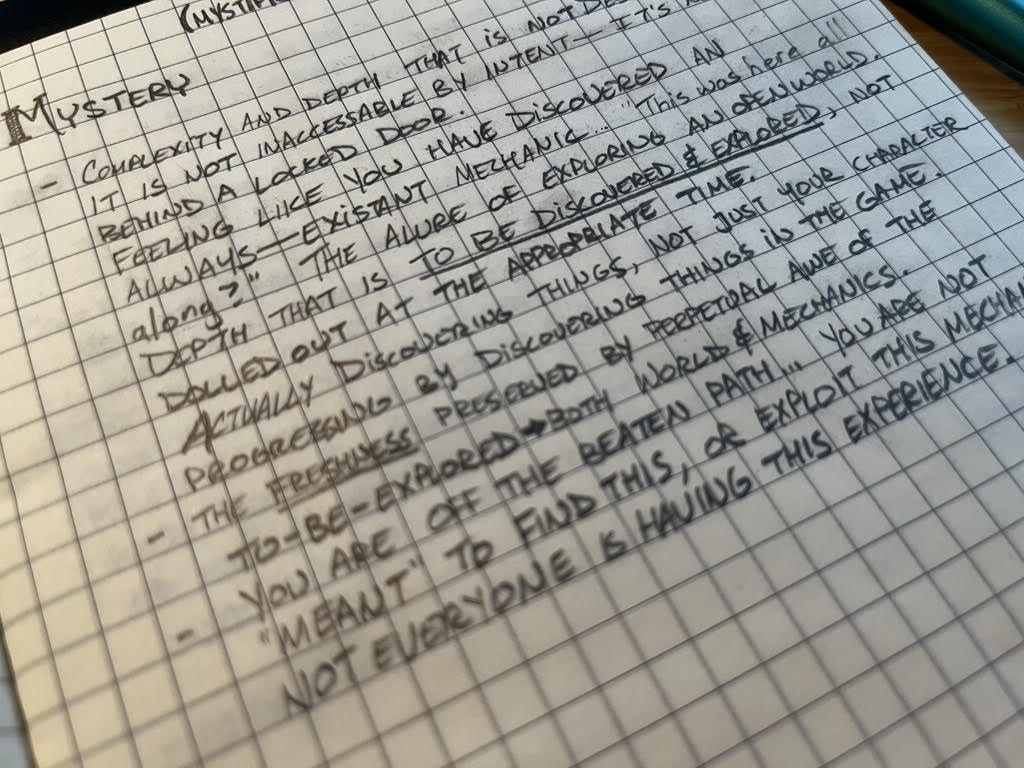 (MYSTIF
MYSTERY
- COMPLEXITY AND DEPTH THAT IS NOT
IT IS NOT INACCESSABLE BY INTENT— IT'S
BEHIND A LOCKED DOOR.
FEELING LIKE YOU HAVE DISCOVERED AN
ALWAYS—EXISTANT MECHANIC... "This was here all
along?" THE ALURE OF EXPLORING AN OPEN WORLD.
DEPTH THAT IS TO BE DISCOVERED & EXPLORED, NOT
DOLLED OUT AT THE APPROPRIATE TIME.
ACTUALLY DISCOVERING THINGS, NOT JUST YOUR CHARACTER
PROGRESSING BY DISCOVERING THINGS IN THE GAME.
- THE FRESHNESS PRESERVED BY PERPETUAL AWE OF THE
TO-BE-EXPLORED → BOTH WORLD & MECHANICS.
- YOU ARE OFF THE BEATEN PATH... YOU ARE NOT
"MEANT" TO FIND THIS, OR EXPLOIT THIS MECHA
NOT EVERYONE IS HAVING THIS EXPERIENCE.